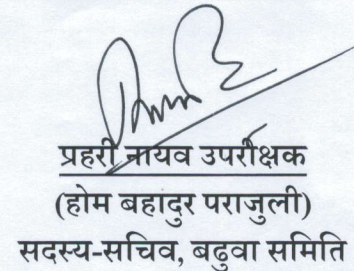 प्रहरी नायव उपरीक्षक
(होम बहादुर पराजुली)
सदस्य-सचिव, बढुवा समिति